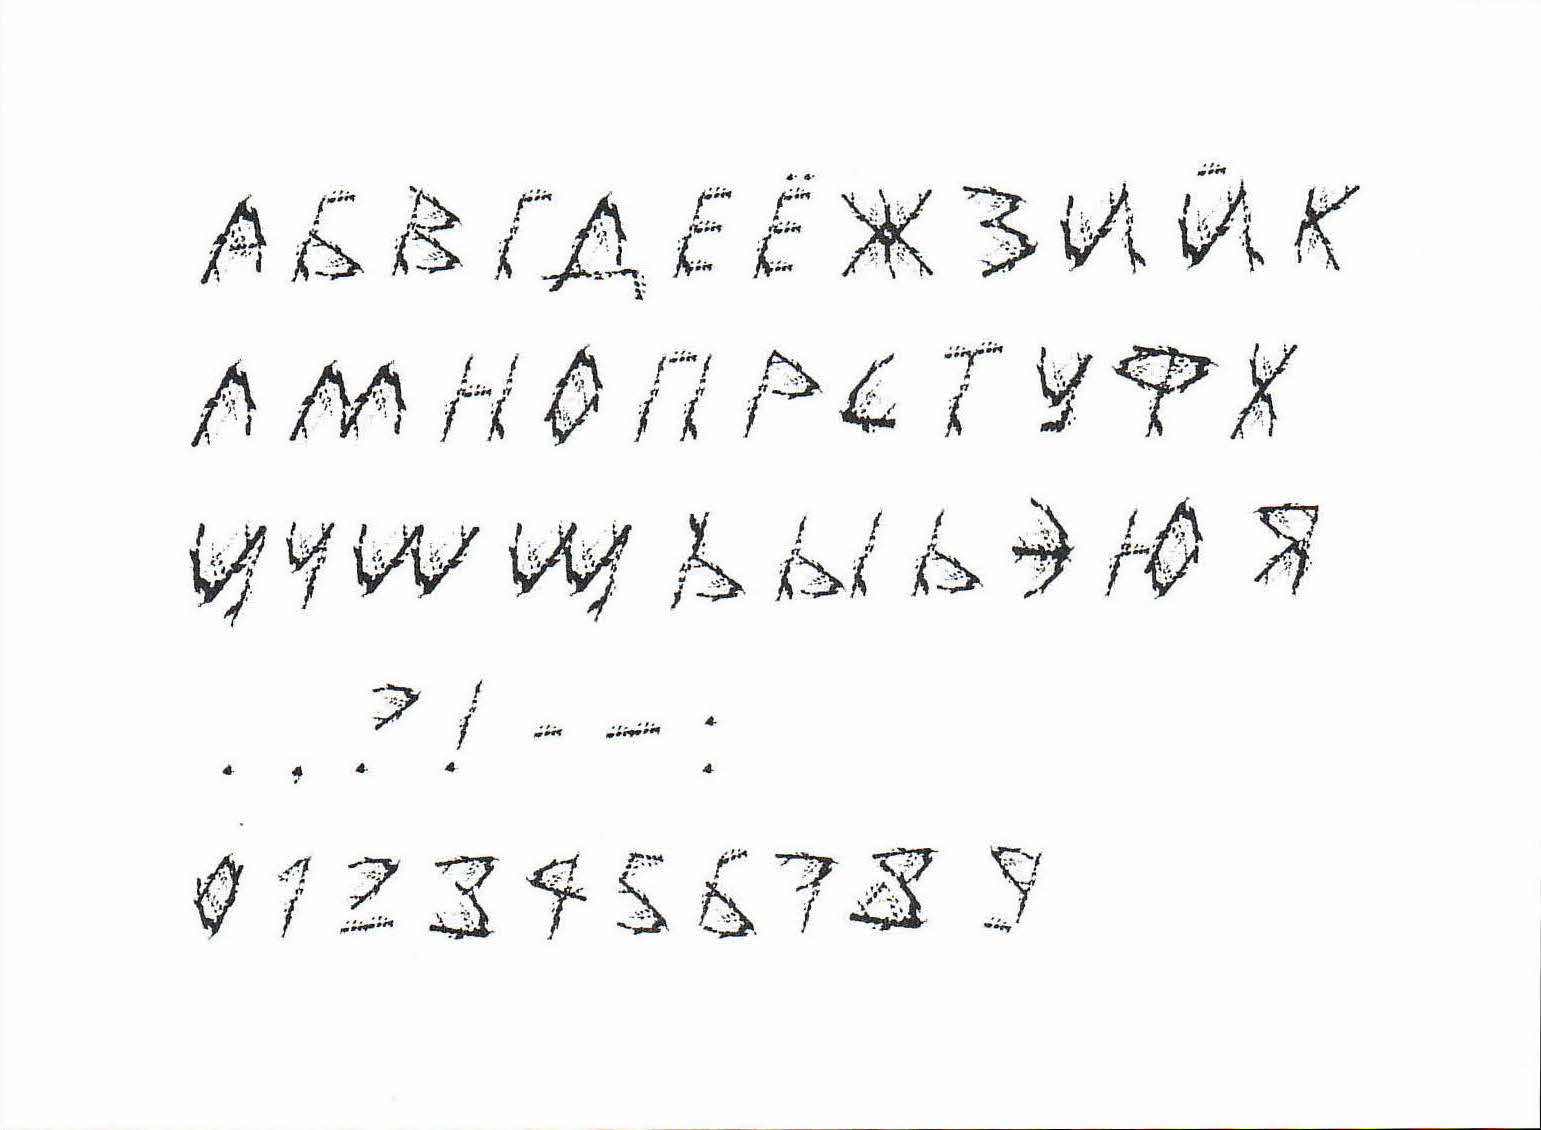 А Б В Г Д Е Ё Ж З И Й К
Л М Н О П Р С Т У Ф Х
Ц Ч Ш Щ Ъ Ы Ь Э Ю Я
. , ? ! - — :
0 1 2 3 4 5 6 7 8 9